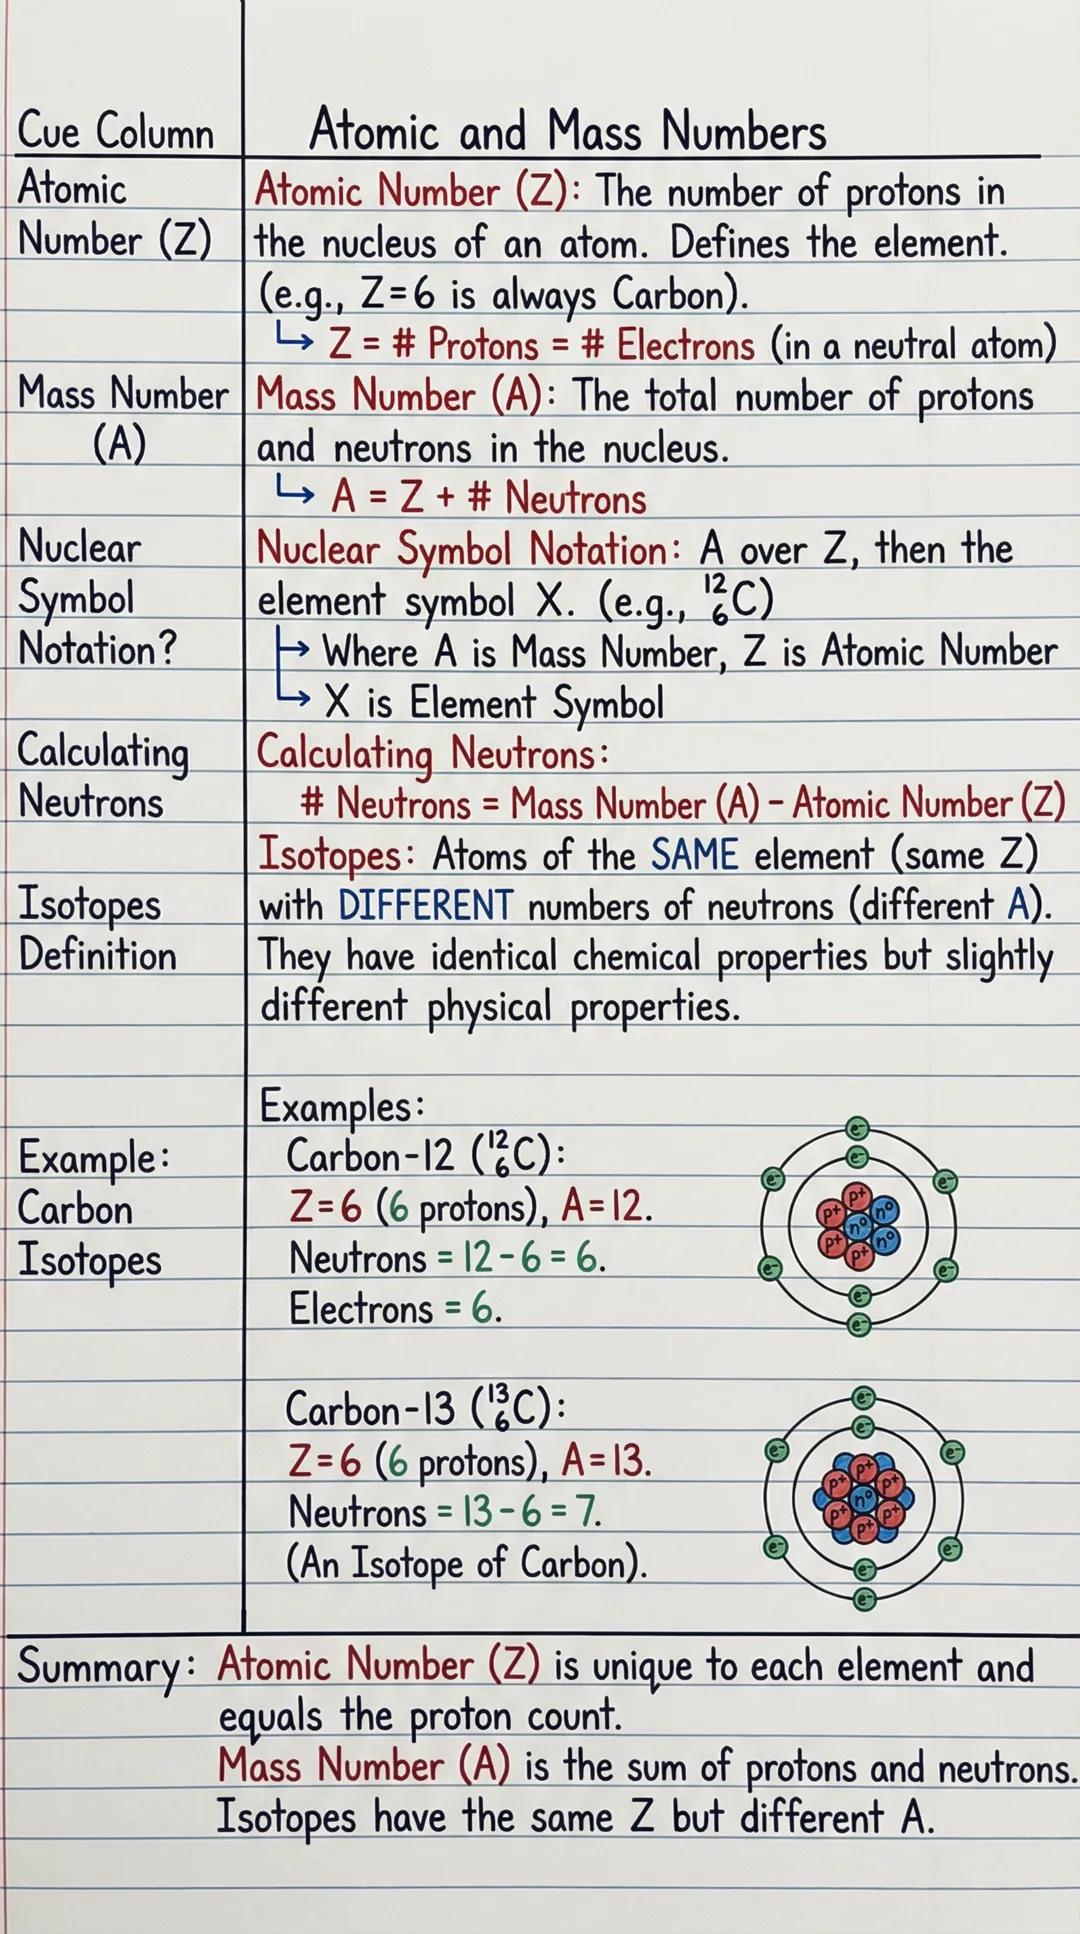 Cue Column
Atomic and Mass Numbers
Atomic
Number (Z)
Atomic Number (Z): The number of protons in
the nucleus of an atom. Defines the element.
(e.g., Z=6 is always Carbon).
↳ Z = # Protons = # Electrons (in a neutral atom)
Mass Number
(A)
Mass Number (A): The total number of protons
and neutrons in the nucleus.
↳ A = Z + # Neutrons
Nuclear
Symbol
Notation?
Nuclear Symbol Notation: A over Z, then the
element symbol X. (e.g., ¹²₆C)
↳ Where A is Mass Number, Z is Atomic Number
↳ X is Element Symbol
Calculating
Neutrons
Calculating Neutrons:
# Neutrons = Mass Number (A) - Atomic Number (Z)
Isotopes
Definition
Isotopes: Atoms of the SAME element (same Z)
with DIFFERENT numbers of neutrons (different A).
They have identical chemical properties but slightly
different physical properties.
Example:
Carbon
Isotopes
Examples:
Carbon-12 (¹²₆C):
Z=6 (6 protons), A=12.
Neutrons = 12-6=6.
Electrons = 6.
e⁻
e⁻
e⁻ e⁻
p⁺
p⁺ n⁰
n⁰
p⁺ n⁰
p⁺
e⁻ e⁻
e⁻
e⁻
Carbon-13 (¹³₆C):
Z=6 (6 protons), A=13.
Neutrons = 13-6=7.
(An Isotope of Carbon).
e⁻
e⁻
e⁻ e⁻
p⁺
p⁺ p⁺
n⁰
p⁺ p⁺
p⁺
e⁻ e⁻
e⁻
e⁻
Summary: Atomic Number (Z) is unique to each element and
equals the proton count.
Mass Number (A) is the sum of protons and neutrons.
Isotopes have the same Z but different A.